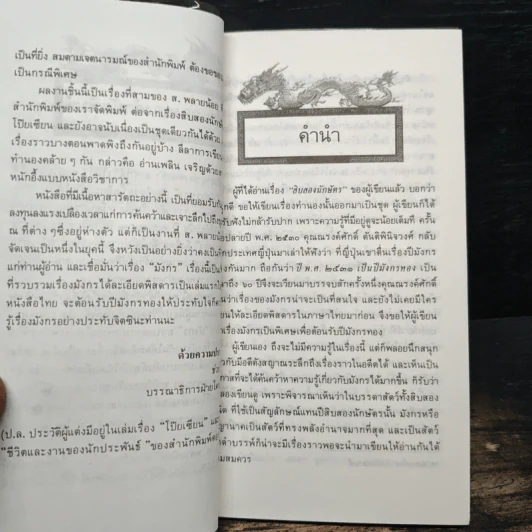 เป็นที่ยิ่ง สมตามเจตนารมณ์ของสำนักพิมพ์ ต้องขอขอบ
เป็นกรณีพิเศษ
ผลงานชิ้นนี้เป็นเรื่องที่สามของ ส. พลายน้อย
สำนักพิมพ์ของเราจัดพิมพ์ ต่อจากเรื่องสิบสองนักษัตร
โป๊ยเซียน และยังอาจนับเนื่องเป็นชุดเดียวกันได้ด้วย
เรื่องราวบางตอนพาดพิงถึงกันอยู่บ้าง ลีลาการเขียน
ทำนองคล้าย ๆ กัน กล่าวคือ อ่านเพลิน เจริญด้วย
หนักอึ้งแบบหนังสือวิชาการ
หนังสือที่มีเนื้อหาสารัตถะอย่างนี้ เป็นที่ยอมรับกัน
ลงทุนลงแรงเปลืองเวลาแก่การค้นคว้าและเจาะลึกไปถึง
ณ ที่ต่าง ๆซึ่งอยู่ห่างตัว แต่ก็เป็นงานที่ ส. พลายน้อย
จัดเจนเป็นหนึ่งในยุคนี้ จึงหวังเป็นอย่างยิ่งว่าคงเป็น
แก่ท่านผู้อ่าน และเชื่อมั่นว่าเรื่อง “มังกร” เรื่องนี้เป็น
ที่รวบรวมเรื่องมังกรได้ละเอียดพิสดารเป็นเล่มแรก
หนังสือไทย จะต้องรับปีมังกรทองให้ประทับใจก็
รู้เรื่องมังกรอย่างประทับจิตซินะท่านนะ
ด้วยความ
บรรณาธิการฝ่าย
(ป.ล. ประวัติผู้แต่งมีอยู่ในเล่มเรื่อง “โป๊ยเซียน” และ
“ชีวิตและงานของนักประพันธ์ ”ของสำนักพิมพ์
คำนำ
ผู้ที่ได้อ่านเรื่อง “สิบสองนักษัตร” ของผู้เขียนแล้ว บอกว่า
ขอให้เขียนเรื่องทำนองนั้นออกมาเป็นชุด ผู้เขียนก็ได้
รับฟังไม่กล้ารับปาก เพราะความรู้ที่มีอยู่ดูจะน้อยเต็มที ครั้น
ปลายปี พ.ศ. ๒๕๓๐ คุณณรงค์ศักดิ์ ตันติพินิจวงศ์ กลับ
ประเทศญี่ปุ่นมาเล่าให้ฟังว่า ที่ญี่ปุ่นเขาตื่นเรื่องปีมังกร
กันมาก ถือกันว่า ปี พ.ศ. ๒๕๓๑ เป็นปีมังกรทอง เป็น
ถึง ๖๐ ปีจึงจะเวียนมาบรรจบสักครั้งหนึ่งคุณณรงค์ศักดิ์
ว่าเรื่องของมังกรน่าจะเป็นที่สนใจ และยังไม่เคยมีใคร
ให้ละเอียดพิสดารในภาษาไทยมาก่อน จึงขอให้ผู้เขียน
เรื่องมังกรเป็นพิเศษเพื่อต้อนรับปีมังกรทอง
ผู้เขียนเอง ถึงจะไม่มีความรู้ในเรื่องนี้ แต่ก็พลอยนึกสนุก
กับมีอดีตังสญาณระลึกถึงเรื่องราวในอดีตได้ และเห็นเป็น
ที่จะได้ค้นคว้าหาความรู้เกี่ยวกับมังกรได้มากขึ้น ก็รับว่า
ลองเขียนดู เพราะพิจารณาเห็นว่าในบรรดาสัตว์ทั้งสิบสอง
ที่ใช้เป็นสัญลักษณ์แทนปีสิบสองนักษัตรนั้น มังกรหรือ
นาคเป็นสัตว์ที่ทรงพลังอำนาจมากที่สุด และเป็นสัตว์
บรรพ์ก็น่าจะมีเรื่องราวพอจะนำมาเขียนให้อ่านกันได้
สมควร